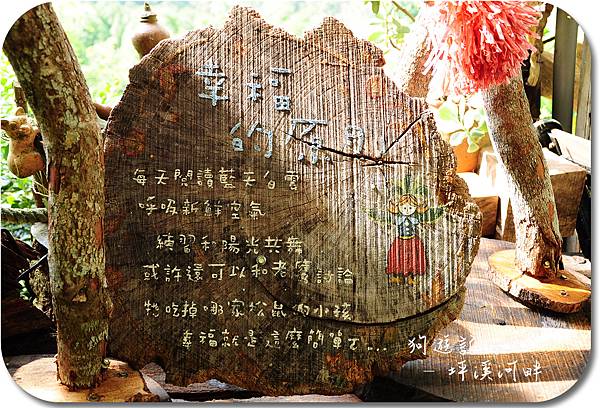 幸福
的原因
每天閱讀藍天白雲
呼吸新鮮空氣
練習和陽光共舞
或許還可以和老鷹討論
牠吃掉哪家松鼠的小孩
幸福就是這麼簡單了...
狗遊記
－坪溪河畔